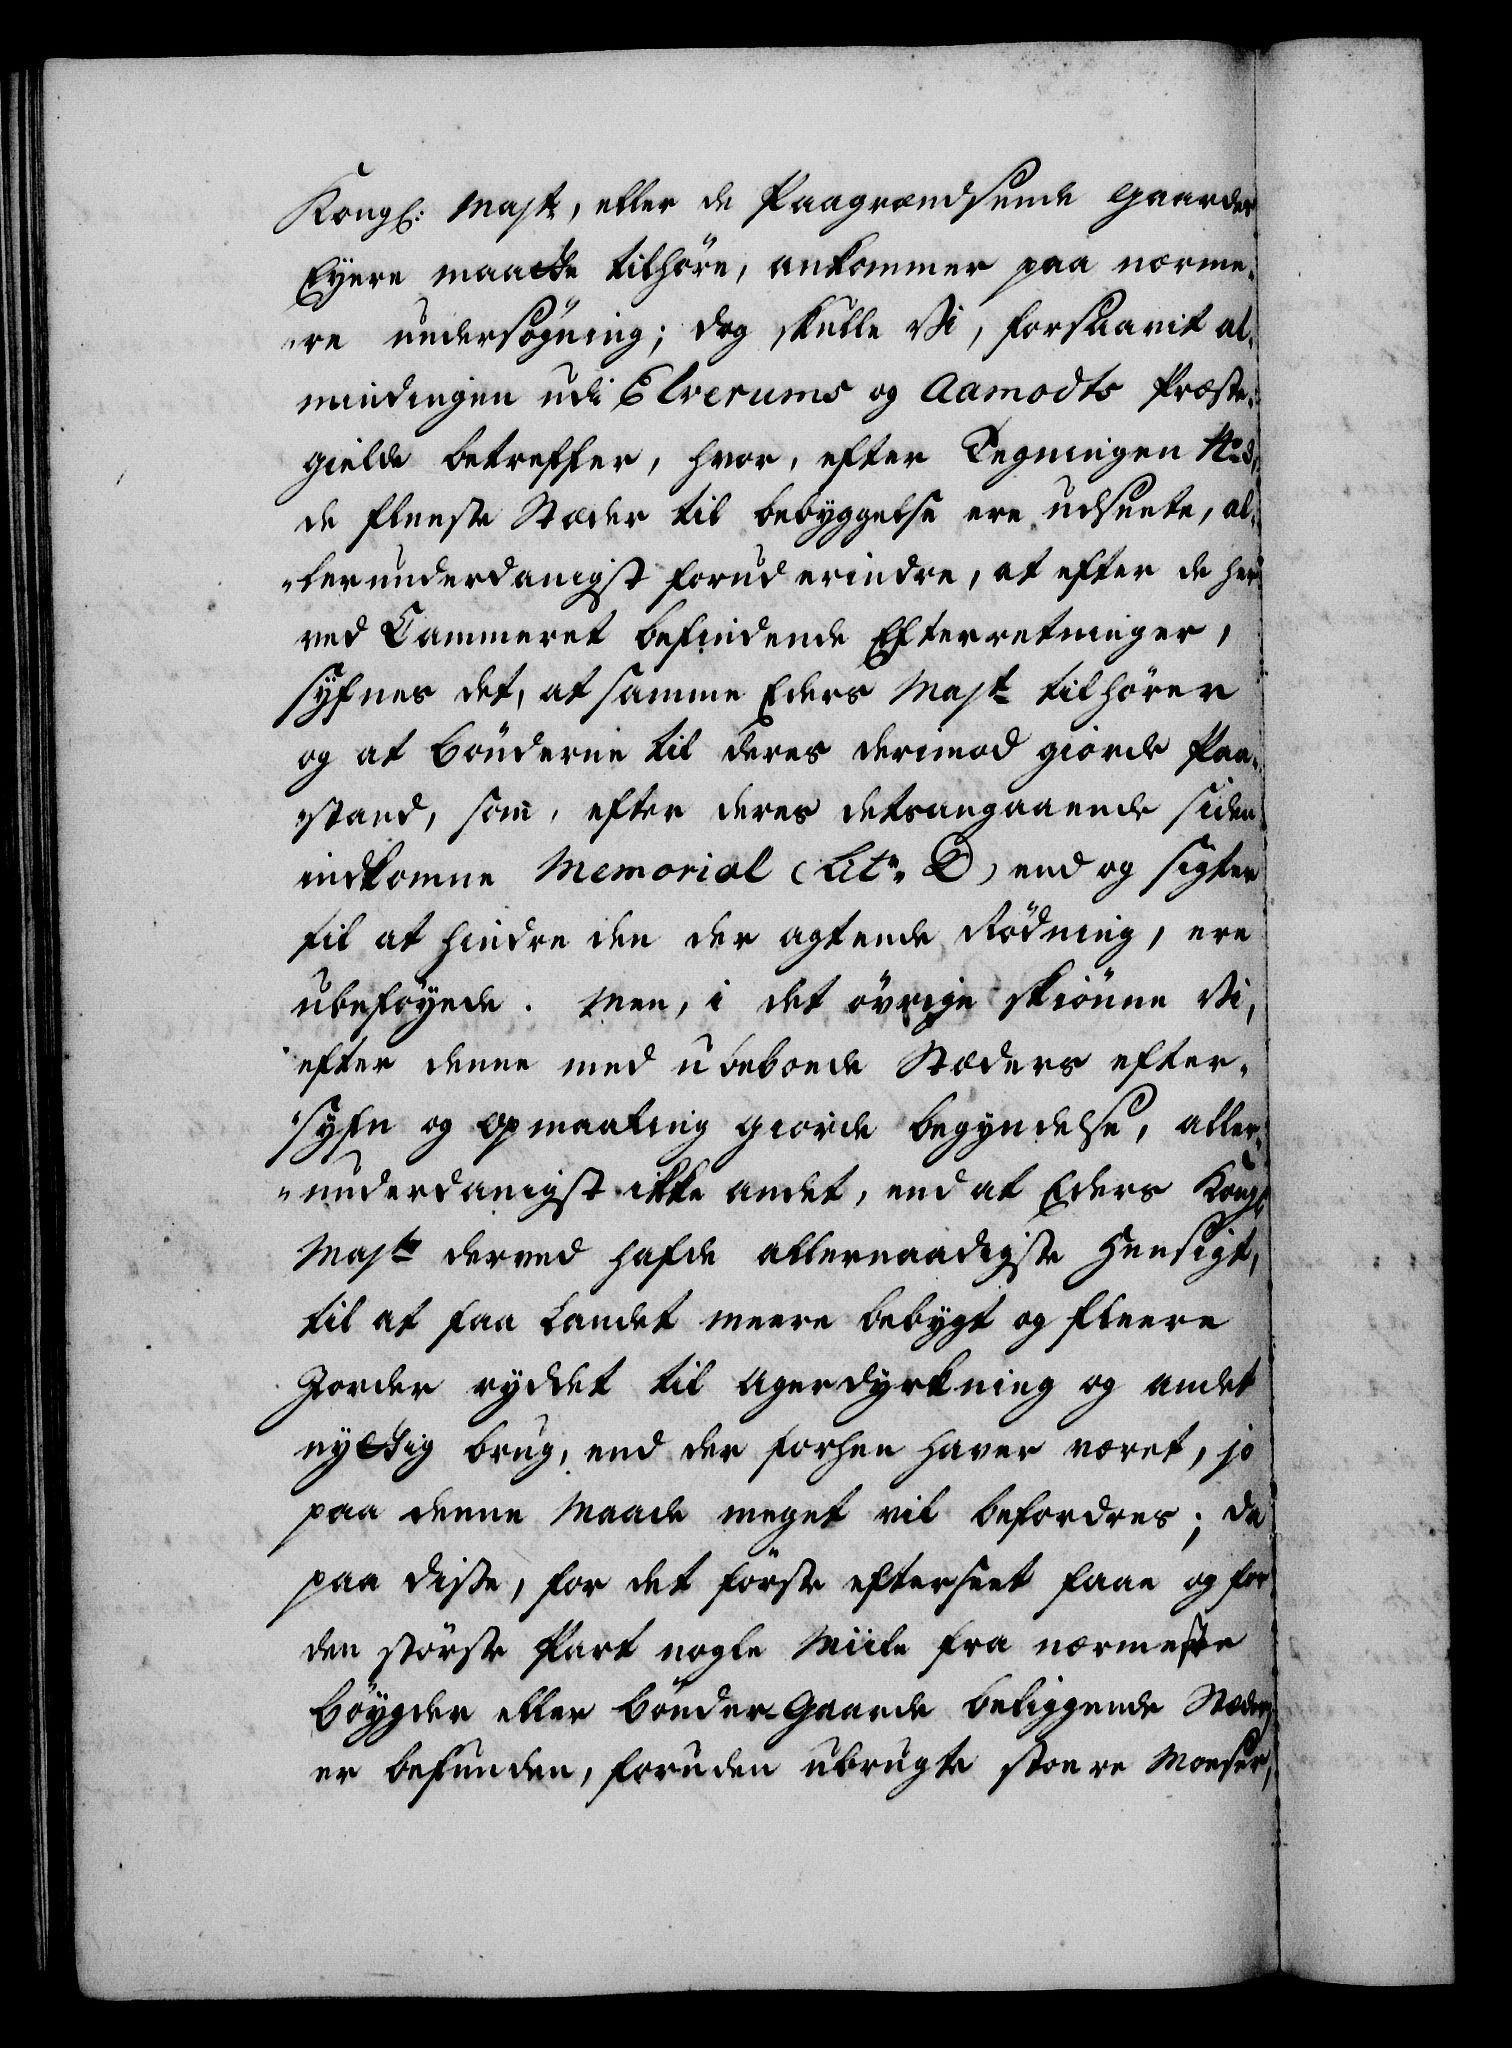 Kongl: Majt, eller de Paagrændsende Gaarders
Eyere maatte tilhöre, ankommer paa nærme-
„re undersögning; dog skulle Vi, forsaavit al-
mindingen udi Elverums og Aamodts Præste-
gielde betreffer, hvor, efter Tegningen No 3,
de fleeste Stæder til bebyggelse ere udseete, al-
„lerunderdanigst forud erindre, at efter de her
ved Cammeret befindende Efterretninger,
syfnes det, at samme Eders Majt tilhörer
og at Bönderne til deres derimod giorde Paa-
„stand, som, efter deres detsangaaende siden
indkomne Memorial (Litr. D) end og sigter
til at hindre den der agtende Rödning, ere
ubeföyede. Men, i det övrige skiönne Vi,
efter denne med ubeboede Stæders efter-
„syfn og opmaaling giorde begyndelse, aller-
„underdanigst ikke andet, end at Eders Kongl
Majts derved hafde allernaadigste Hensigt,
til at faa Landet meere bebygt og fleere
Jorder ryddet til Agerdyrkning og andet
nyttig brug, end der forhen haver været, jo
paa denne Maade meget vil befordres; da
paa disse, for det förste efterseet faae og for
den störste Part nogle Miile fra nærmeste
böygder eller bönder Gaarde beliggende Stæder,
er befunden, foruden ubrugte stoere Moeser,